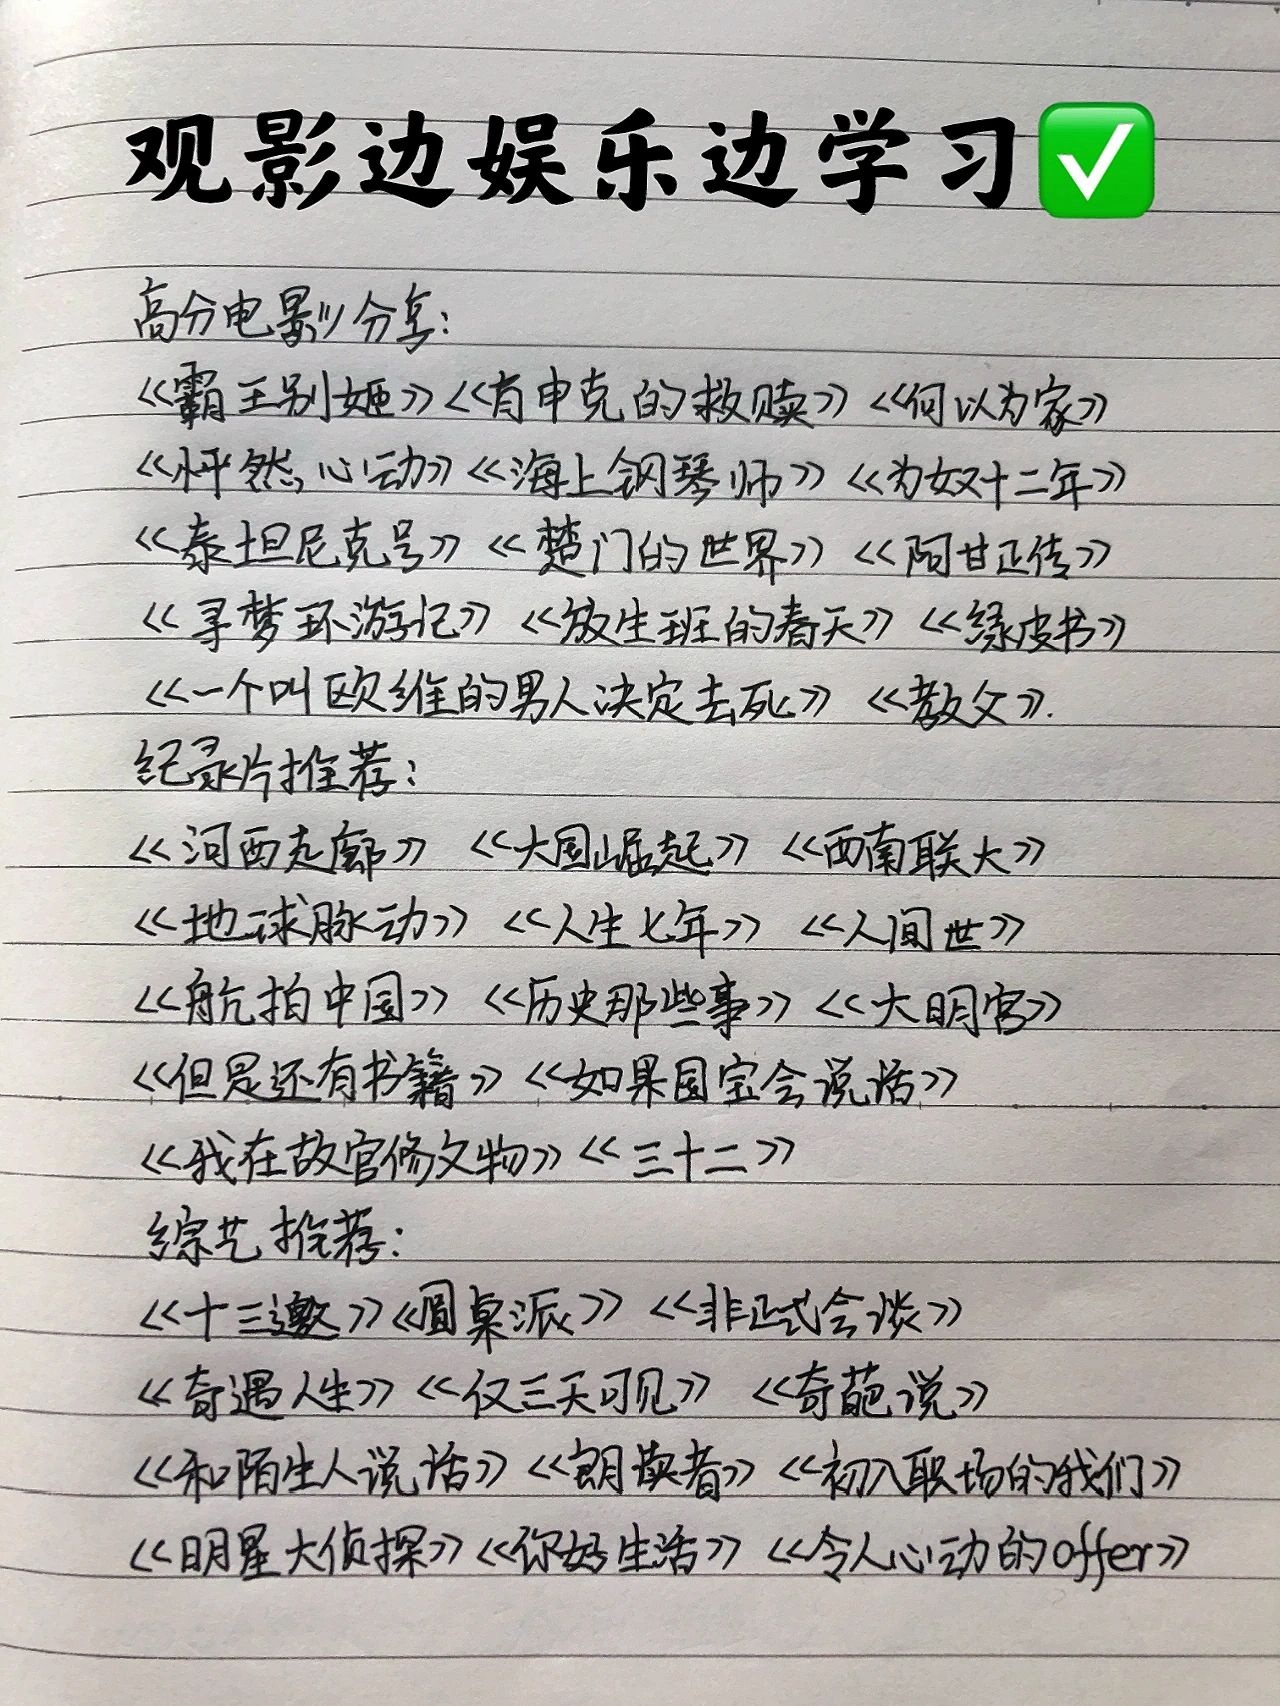 观影边娱乐边学习✅
高分电影分享：
《霸王别姬》《肖申克的救赎》《何以为家》
《怦然心动》《海上钢琴师》《为奴十二年》
《泰坦尼克号》《楚门的世界》《阿甘正传》
《寻梦环游记》《放牛班的春天》《绿皮书》
《一个叫欧维的男人决定去死》《教父》.
纪录片推荐：
《河西走廊》《大国崛起》《西南联大》
《地球脉动》《人生七年》《人间世》
《航拍中国》《历史那些事》《大明宫》
《但是还有书籍》《如果国宝会说话》
《我在故宫修文物》《三十二》
综艺推荐：
《十三邀》《圆桌派》《非正式会谈》
《奇遇人生》《仅三天可见》《奇葩说》
《和陌生人说话》《朗读者》《初入职场的我们》
《明星大侦探》《你好生活》《令人心动的offer》